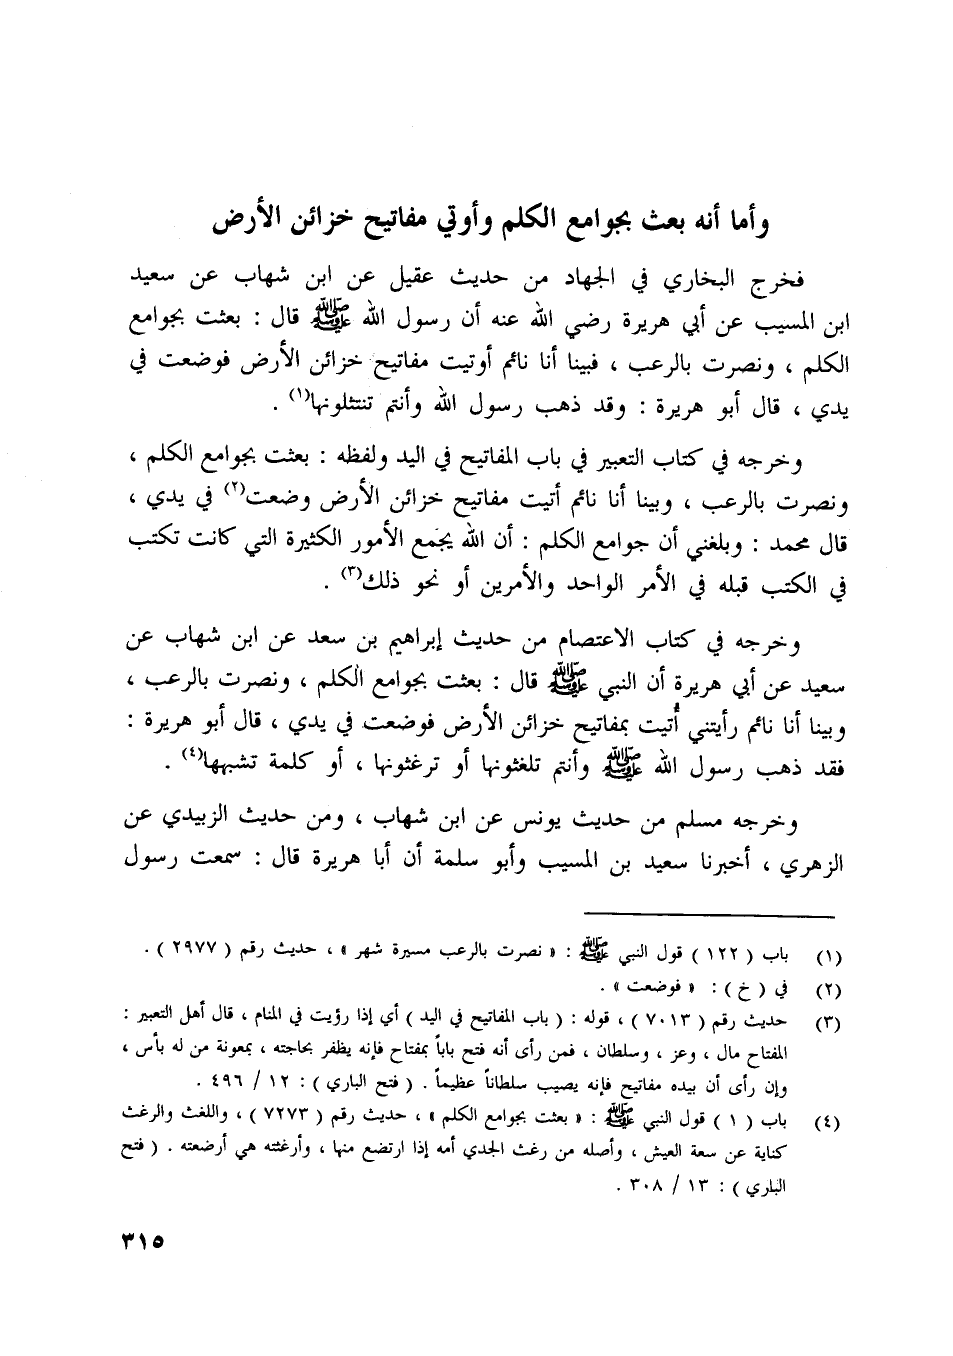 وأما أنه بعث بجوامع الكلم وأوتي مفاتيح خزائن الأرض
فخرج البخاري في الجهاد من حديث عقيل عن ابن شهاب عن سعيد
ابن المسيب عن أبي هريرة رضي الله عنه أن رسول الله ﷺ قال : بعثت بجوامع
الكلم ، ونصرت بالرعب ، فبينا أنا نائم أوتيت مفاتيح خزائن الأرض فوضعت في
يدي ، قال أبو هريرة : وقد ذهب رسول الله وأنتم تنتثلونها(١) .
وخرجه في كتاب التعبير في باب المفاتيح في اليد ولفظه : بعثت بجوامع الكلم ،
ونصرت بالرعب ، وبينا أنا نائم أتيت مفاتيح خزائن الأرض وضعت(٢) في يدي ،
قال محمد : وبلغني أن جوامع الكلم : أن الله يجمع الأمور الكثيرة التي كانت تكتب
في الكتب قبله في الأمر الواحد والأمرين أو نحو ذلك(٣) .
وخرجه في كتاب الاعتصام من حديث إبراهيم بن سعد عن ابن شهاب عن
سعيد عن أبي هريرة أن النبي ﷺ قال : بعثت بجوامع الكلم ، ونصرت بالرعب ،
وبينا أنا نائم رأيتني أُتيت بمفاتيح خزائن الأرض فوضعت في يدي ، قال أبو هريرة :
فقد ذهب رسول الله ﷺ وأنتم تلغثونها أو ترغثونها ، أو كلمة تشبهها(٤) .
وخرجه مسلم من حديث يونس عن ابن شهاب ، ومن حديث الزبيدي عن
الزهري ، أخبرنا سعيد بن المسيب وأبو سلمة أن أبا هريرة قال : سمعت رسول
(١) باب ( ١٢٢ ) قول النبي ﷺ : « نصرت بالرعب مسيرة شهر » ، حديث رقم ( ٢٩٧٧ ) .
(٢) في ( خ ) : « فوضعت » .
(٣) حديث رقم ( ٧٠١٣ ) ، قوله : ( باب المفاتيح في اليد ) أي إذا رؤيت في المنام ، قال أهل التعبير :
المفتاح مال ، وعز ، وسلطان ، فمن رأى أنه فتح باباً بمفتاح فإنه يظفر بحاجته ، بمعونة من له بأس ،
وإن رأى أن بيده مفاتيح فإنه يصيب سلطاناً عظيماً . ( فتح الباري ) : ١٢ / ٤٩٦ .
(٤) باب ( ١ ) قول النبي ﷺ : « بعثت بجوامع الكلم » ، حديث رقم ( ٧٢٧٣ ) ، واللغث والرغث
كناية عن سعة العيش ، وأصله من رغث الجدي أمه إذا ارتضع منها ، وأرغثته هي أرضعته . ( فتح
الباري ) : ١٣ / ٣٠٨ .
٣١٥